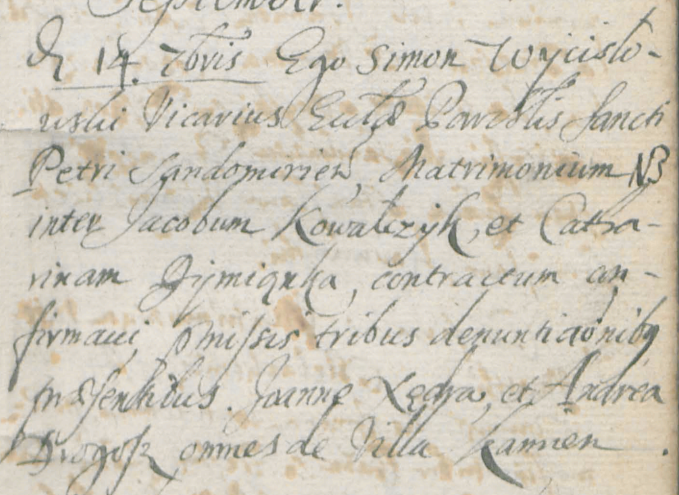 September.
D 14. 7bris Ego Simon Wojcislo-
uski Vicarius Eccl̃æ Paroc̃lis Sancti
Petri Sandomirien, Matrimonium NB
inter Jacobum Kowalczyk, et Catha-
rinam contractum con-
firmaui, p̃missis tribus denuntiaõnibq
p̃sentibus. Joanne Lędza, et Andrea
Drogosz omnes de Villa Kamien.